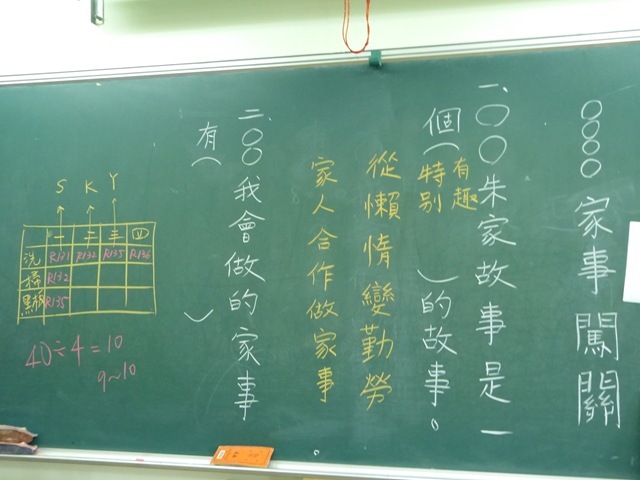 ○○○○家事闖關
一、○○朱家故事是一
個(有趣
特別)的故事。
從懶惰變勤勞
家人合作做家事
二、○○我會做的家事
有()
S K Y
一 二 三 四
洗 R121 R132 R135 R136
掃 R132
R135
40÷4=10
9~10